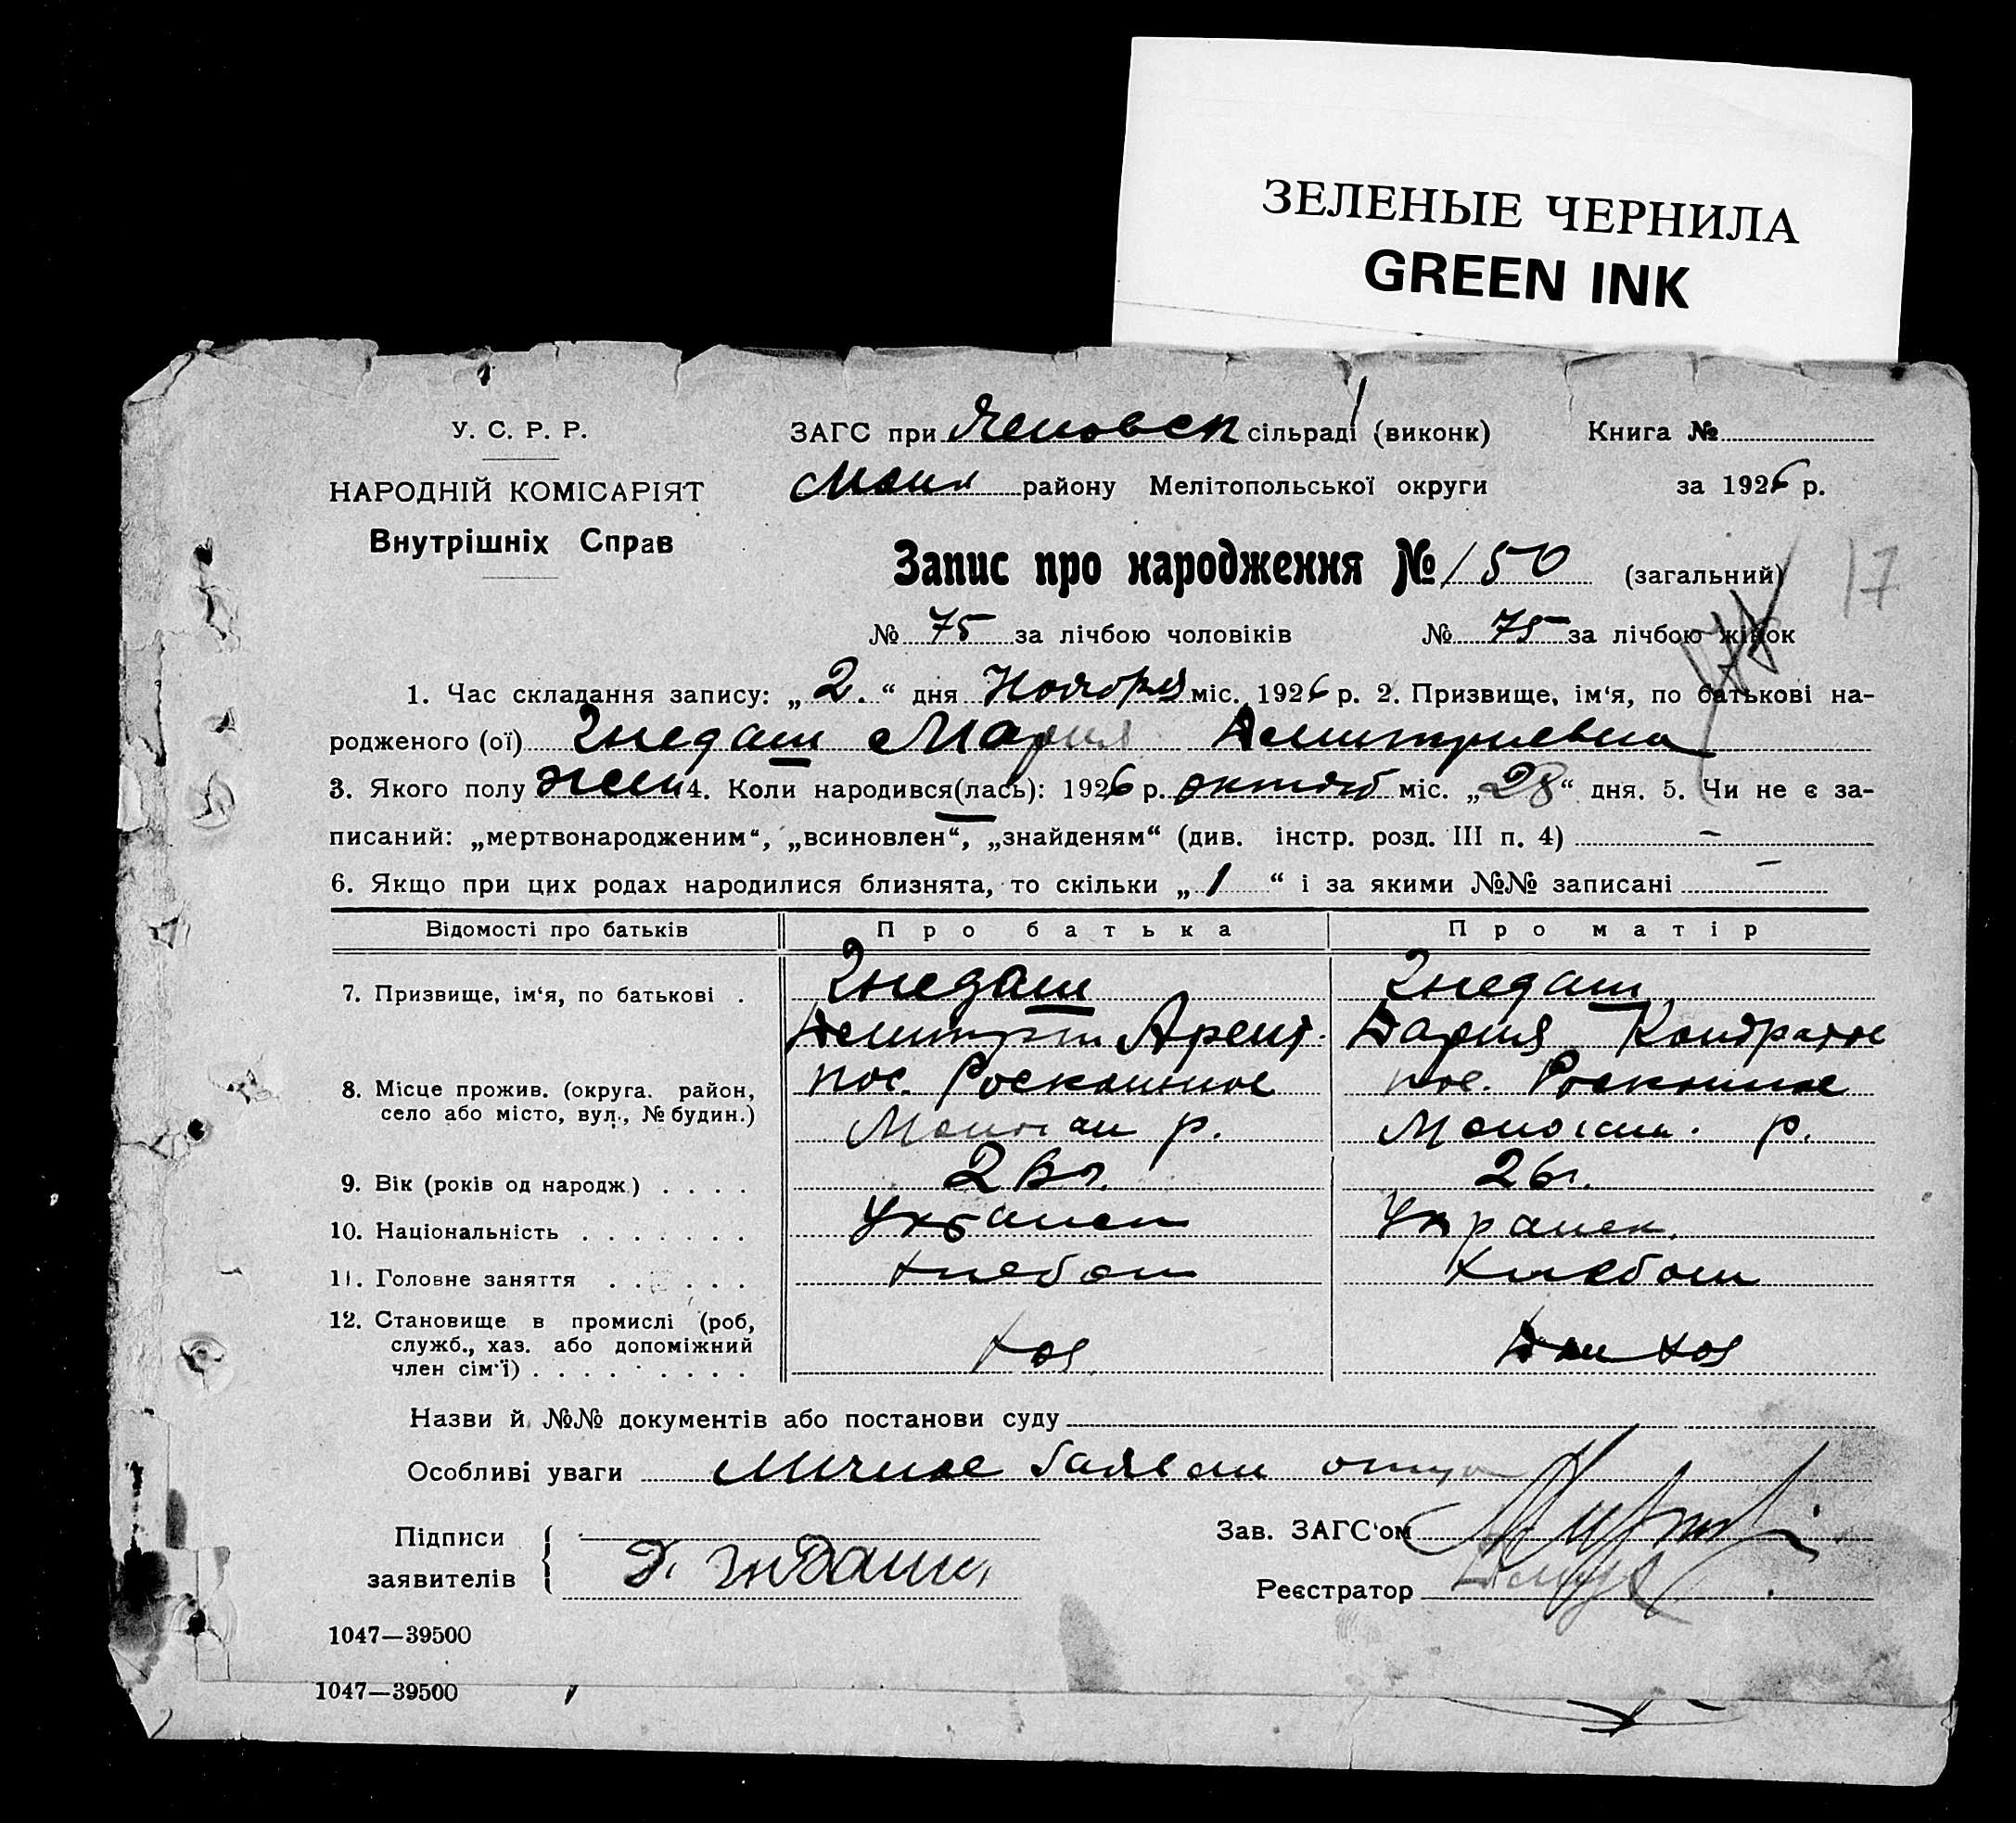 ЗЕЛЕНЫЕ ЧЕРНИЛА
GREEN INK
У. С. Р. Р.
НАРОДНІЙ КОМІСАРІЯТ
Внутрішніх Справ
ЗАГС при сільраді (виконк) Книга №
району Мелітопольської округи за 1926 р.
Запис про народження № 150 (загальний)
17
№ 75 за лічбою чоловіків № 75 за лічбою жінок
1. Час складання запису: „ 2. “ дня Ноября міс. 1926 р. 2. Призвище, ім‘я, по батькові на-
родженого (ої) Гнедаш Мария Дмитриевна
3. Якого полу жен 4. Коли народився(лась): 1926 р. октяб міс. „ 28 “ дня. 5. Чи не є за-
писаний: „мертвонародженим“, „всиновлен“, „знайденям“ (див. інстр. розд. III п. 4) –
6. Якщо при цих родах народилися близнята, то скільки „ 1 “ і за якими №№ записані –
Відомості про батьків Про батька Про матір
7. Призвище, ім‘я, по батькові . Гнедаш Гнедаш
Дмитри Дария Кондратов
8. Місце прожив. (округа. район, село або місто, вул., № будин.) пос. Роскошное пос. Роскошное
р. р.
9. Вік (років од народж) . . . . 26г.
10. Національність . . . . . . . Украинец Украинск.
11. Головне заняття . . . . . . Хлебоп Хлебоп
12. Становище в промислі (роб, служб., хаз. або допоміжний член сім'ї) . . . . . . . . Хоз Дом Хоз
Назви й №№ документів або постанови суду
Особливі уваги личное отца
Підписи
заявителів
Зав. ЗАГС‘ом
Реєстратор
1047—39500
1047—39500